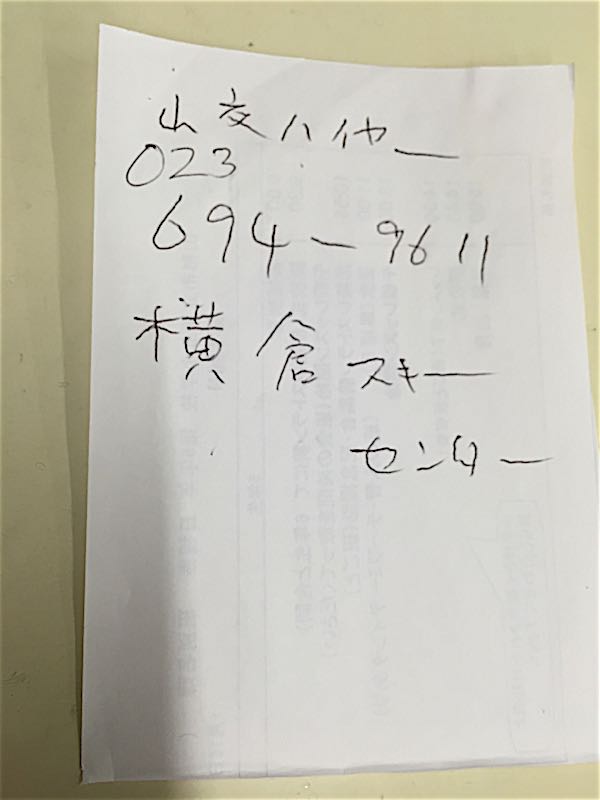 山交ハイヤー
023
694-9611
横倉スキー
センター